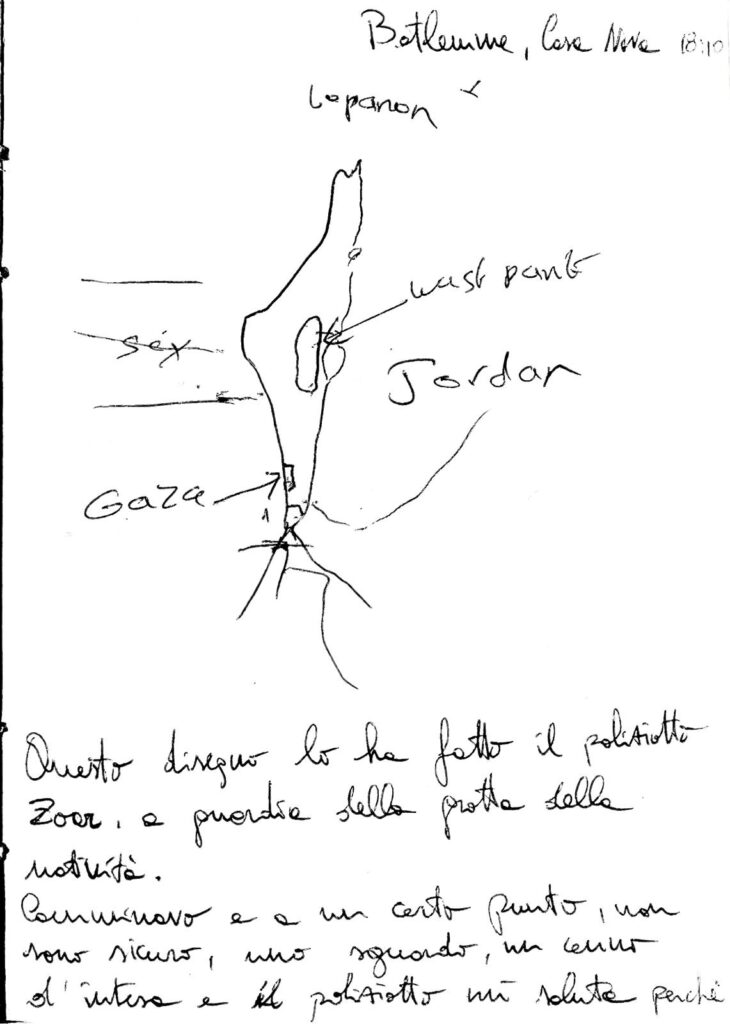 Betlemme, Casa Nova 18:10
Lepanon
wast pank
sex
Jordan
Gaza
Questo disegno lo ha fatto il poliziotto
Zoer, a guardia della grotta della
natività.
Camminavo e a un certo punto, non
sono sicuro, uno sguardo, un cenno
d'intesa e il poliziotto mi saluta perché